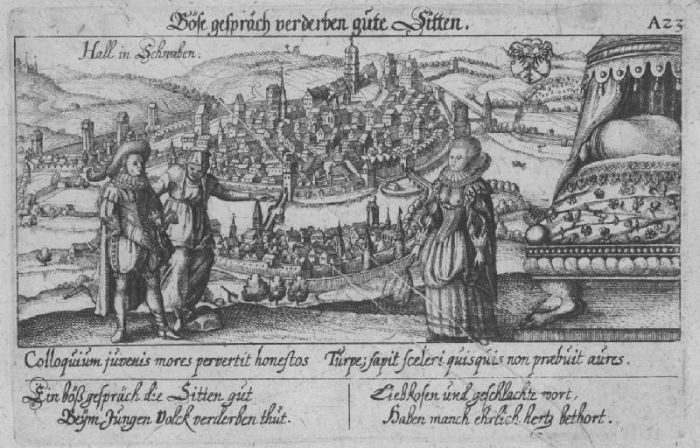 Böse gespräch verderben gute Sitten.
A23
Hall in Schwaben.
Colloquium juvenis mores pervertit honestos Turpe; sapit sceleri quisquis non præbuit aures.
Ein bößgespräch die Sitten gut
Beÿm Jungen Volck verderben thut.
Liebkosen und geschlachte wort,
Haben manch ehrlich hertz bethort.